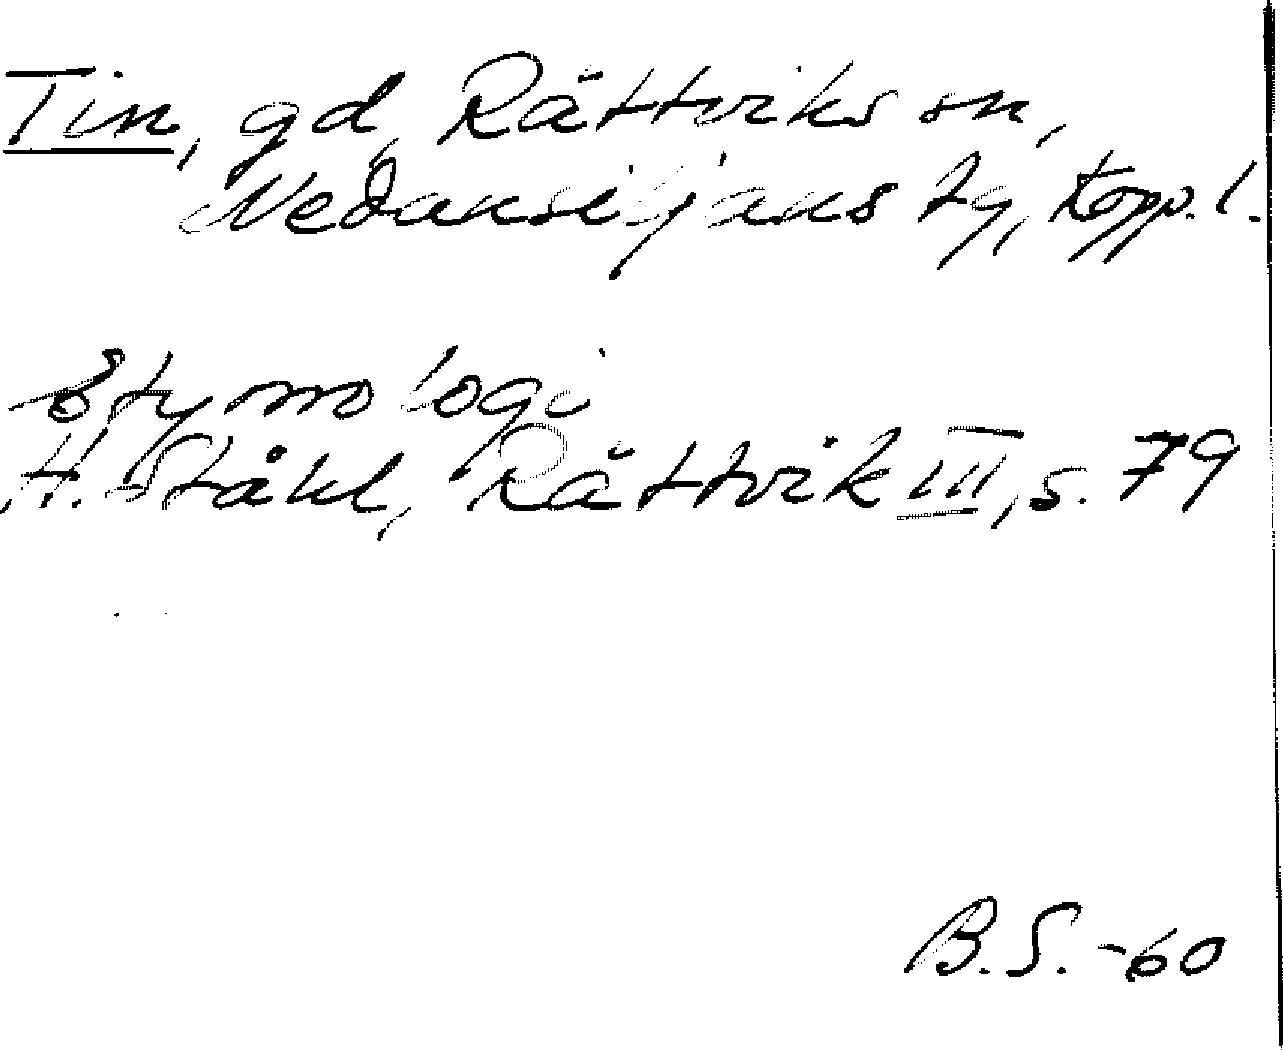 Tin, gd, Rättviks sn,
Nedansiljans tg, Kopp. l.
Etymologi
H. Ståhl, Rättvik III, s. 79
B.S. -60